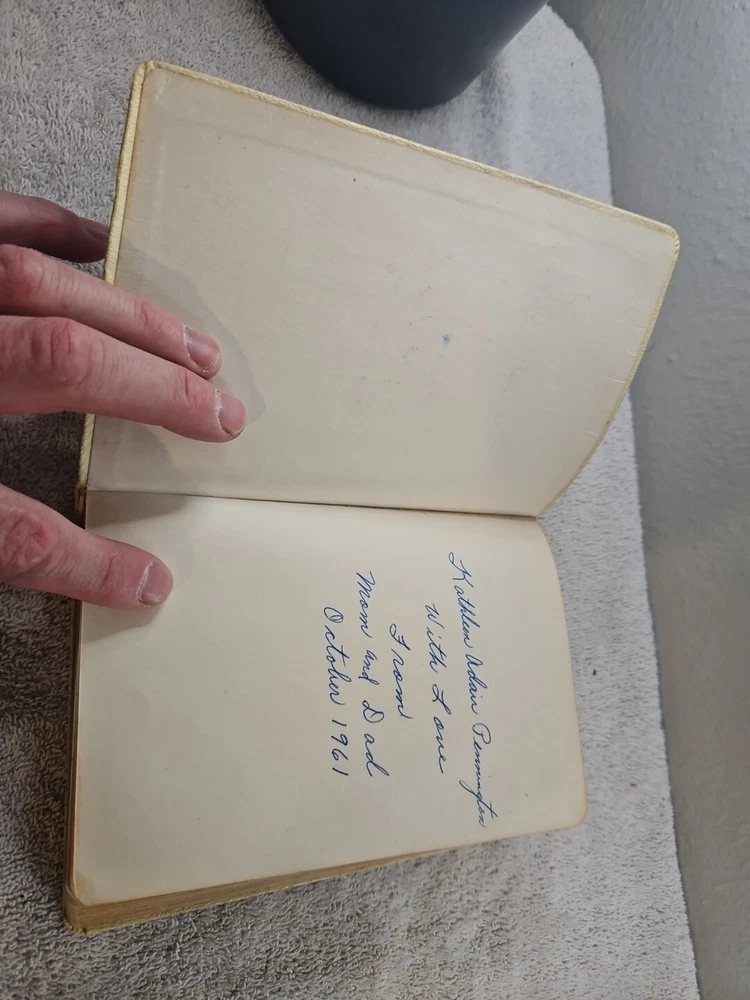 Kathleen Adair Pennington
With Love
From
Mom and Dad
October 1961